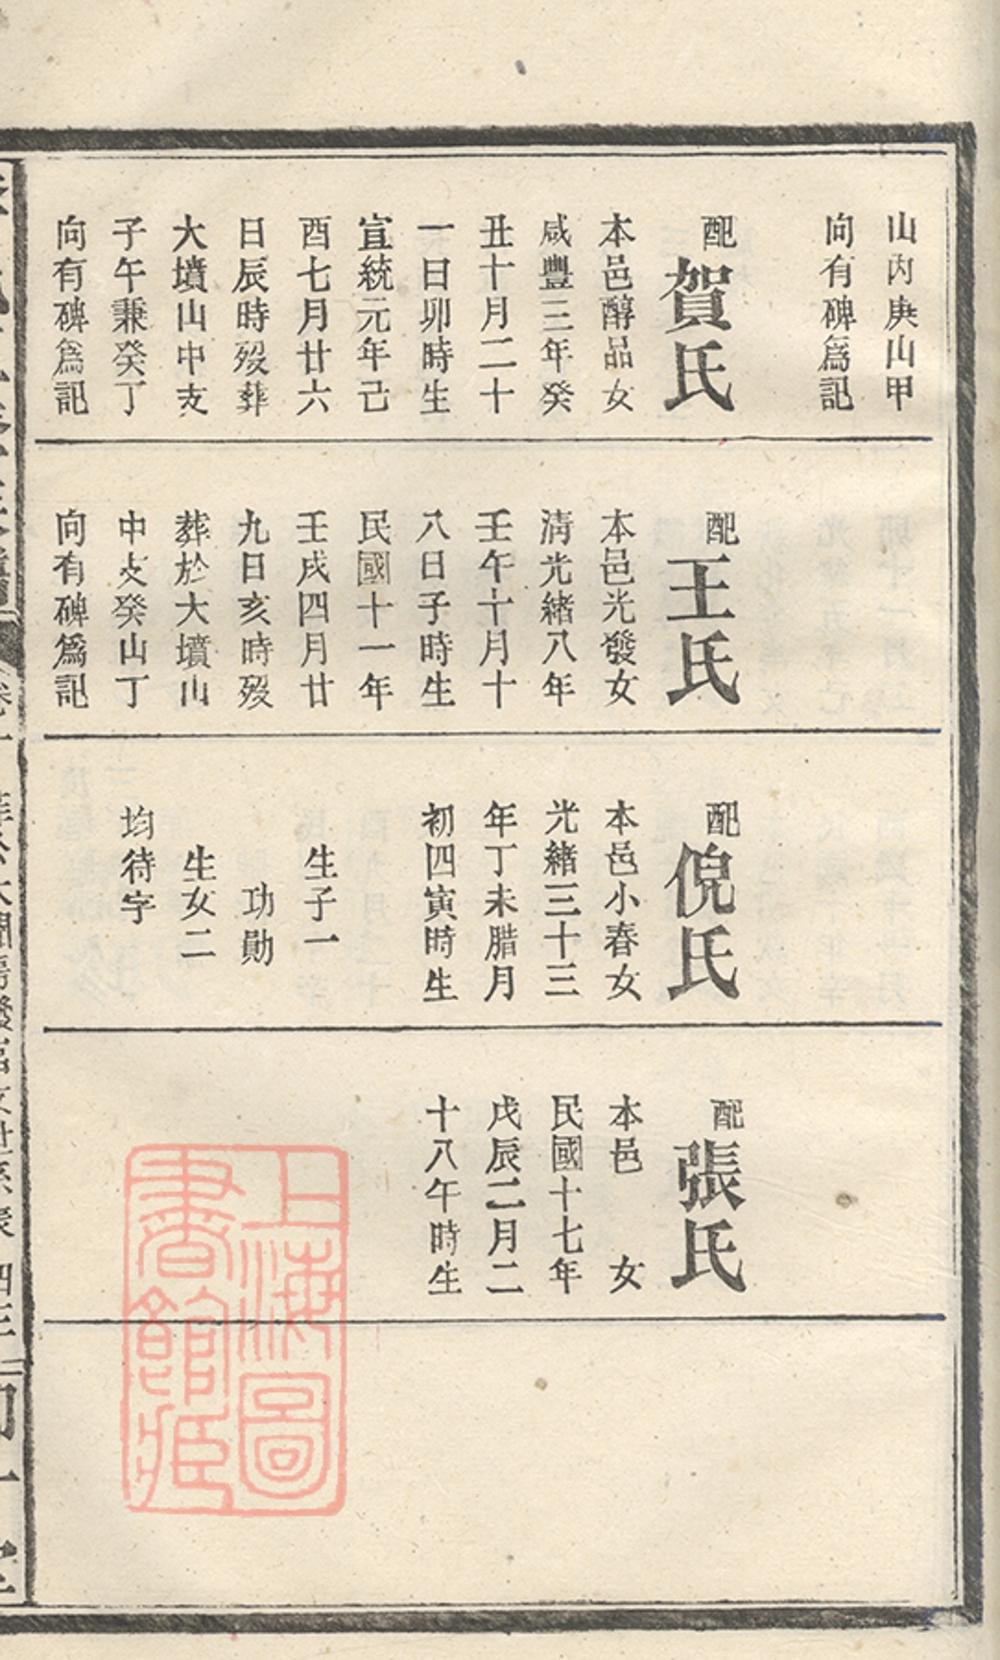 山內庚山甲
向有碑爲記
配賀氏
本邑醇品女
咸豐三年癸
丑十月二十
一日卯時生
宣統元年己
酉七月廿六
日辰時歿葬
大墳山中支
子午秉癸丁
向有碑爲記
配王氏
本邑光發女
淸光緒八年
壬午十月十
八日子時生
民國十一年
壬戌四月廿
九日亥時歿
葬於大墳山
中支癸山丁
向有碑爲記
配倪氏
本邑小春女
光緒三十三
年丁未腊月
初四寅時生
生子一
功勛
生女二
均待字
配張氏
本邑　女
民國十七年
戊辰二月二
十八午時生
上海圖
書館藏